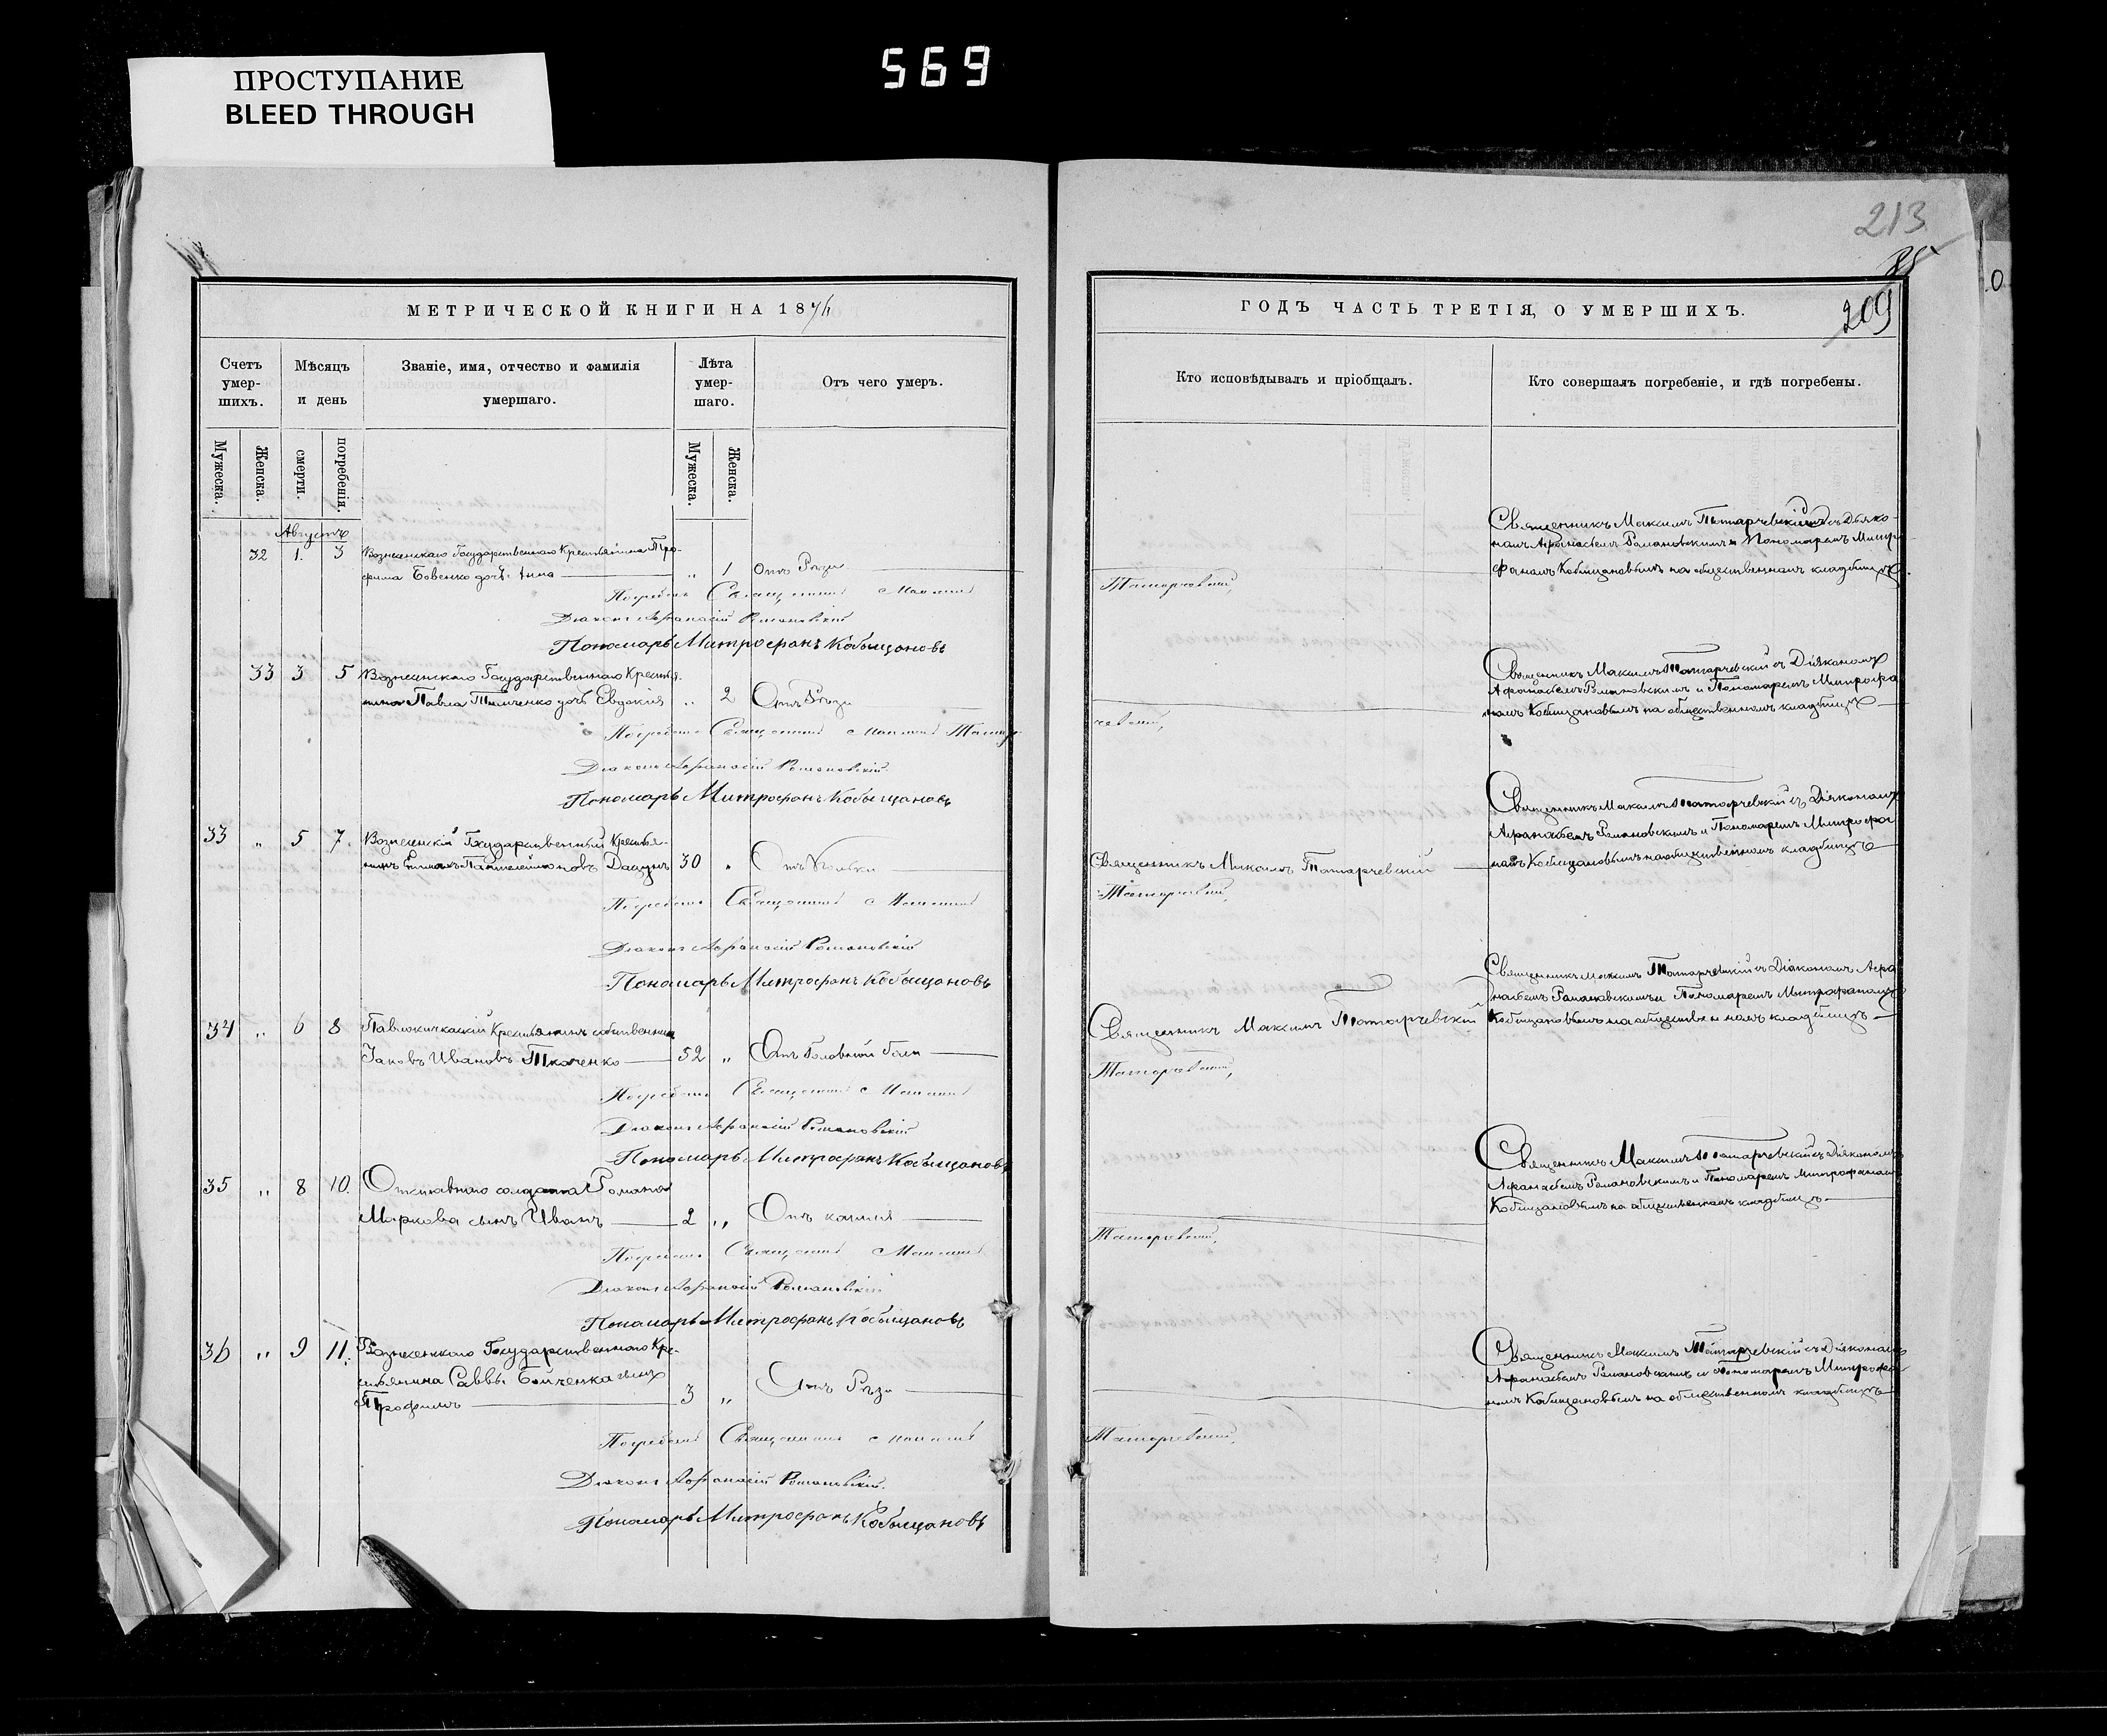 569
ПРОСТУПАНИЕ
BLEED THROUGH
213
209
МЕТРИЧЕСКОЙ КНИГИ НА 1876
Счетъ умер-
шихъ.
Мѣсяцъ
и день
Званіе, имя, отчество и фамилія
умершаго.
Лѣта
умер-
шаго.
Отъ чего умеръ.
Мужеска.
Женска.
смерти.
погребенія.
Мужеска.
Женска.
Августъ
32 1. 3 Вознесенскаго Государственнаго Крестьянина Тро-
фима Бовенко дочь Анна „ 1 Отъ Рѣзи
Погребалъ Священникъ Максимъ
Діаконъ Афанасій Романовскій
Пономарь Митрофанъ Кобыщановъ
33 3 5 Вознесенскаго Государственнаго Крестья-
нина Павла Тимченко дочь Евдокія „ 2 Отъ Рѣзи
Погребалъ Священникъ Максимъ Татар
Діаконъ Афанасій Романовскій
Пономарь Митрофанъ Кобыщановъ
33 „ 5 7. Вознесенскій Государственный Крестья-
нинъ Пантелеймоновъ Дацунъ 30 „ Отъ
Погребалъ Священникъ Максимъ
Діаконъ Афанасій Романовскій
Пономарь Митрофанъ Кобыщановъ
34 „ 6 8 Крестьянинъ собственникъ
Іаковъ Ивановъ Ткаченко 52 „ Отъ Головной боли
Погребалъ Священникъ Максимъ
Діаконъ Афанасій Романовскій
Пономарь Митрофанъ Кобыщановъ
35 „ 8 10. Отставнаго солдата Романа
Маркова сынъ Иванъ 2 „ Отъ кашля
Погребалъ Священникъ Максимъ
Діаконъ Афанасій Романовскій
Пономарь Митрофанъ Кобыщановъ
36 „ 9 11. Вознесенскаго Государственнаго Кре-
стьянина Саввы Бойченка сынъ
Трофимъ 3 „ Отъ Рѣзи
Погребалъ Священникъ Максимъ
Діаконъ Афанасій Романовскій
Пономарь Митрофанъ Кобыщановъ
ГОДЪ ЧАСТЬ ТРЕТІЯ, О УМЕРШИХЪ.
Кто исповѣдывалъ и пріобщалъ.
Кто совершалъ погребеніе, и гдѣ погребены.
Священникъ Максимъ Татарчевскій съ Діяко-
номъ Афанасіемъ Романовскимъ и Пономаремъ Митро
фаномъ Кобыщановымъ на общественномъ кладбищѣ
Татарчевскій,
Священникъ Максимъ Татарчевскій съ Діякономъ
Афанасіемъ Романовскимъ и Пономаремъ Митрофа
номъ Кобыщановымъ на общественномъ кладбищѣ
чевскій,
Священникъ Максимъ Татарчевскій съ Діякономъ
Афанасіемъ Романовскимъ и Пономаремъ Митрофа
номъ Кобыщановымъ на общественномъ кладбищѣ
Священникъ Максимъ Татарчевскій
Татарчевскій,
Священникъ Максимъ Татарчевскій съ Діякономъ Афа
насіемъ Романовскимъ и Пономаремъ Митрофаномъ
Кобыщановымъ на общественномъ кладбищѣ
Священникъ Максимъ Татарчевскій
Татарчевскій,
Священникъ Максимъ Татарчевскій съ Діякономъ
Афанасіемъ Романовскимъ и Пономаремъ Митрофаномъ
Кобыщановымъ на общественномъ кладбищѣ
Татарчевскій,
Священникъ Максимъ Татарчевскій съ Діякономъ
Афанасіемъ Романовскимъ и Пономаремъ Митрофа
номъ Кобыщановымъ на общественномъ кладбищѣ
Татарчевскій,